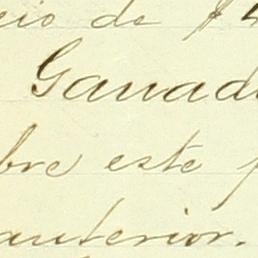 cio de $4
Ganad
bre este
anterior.